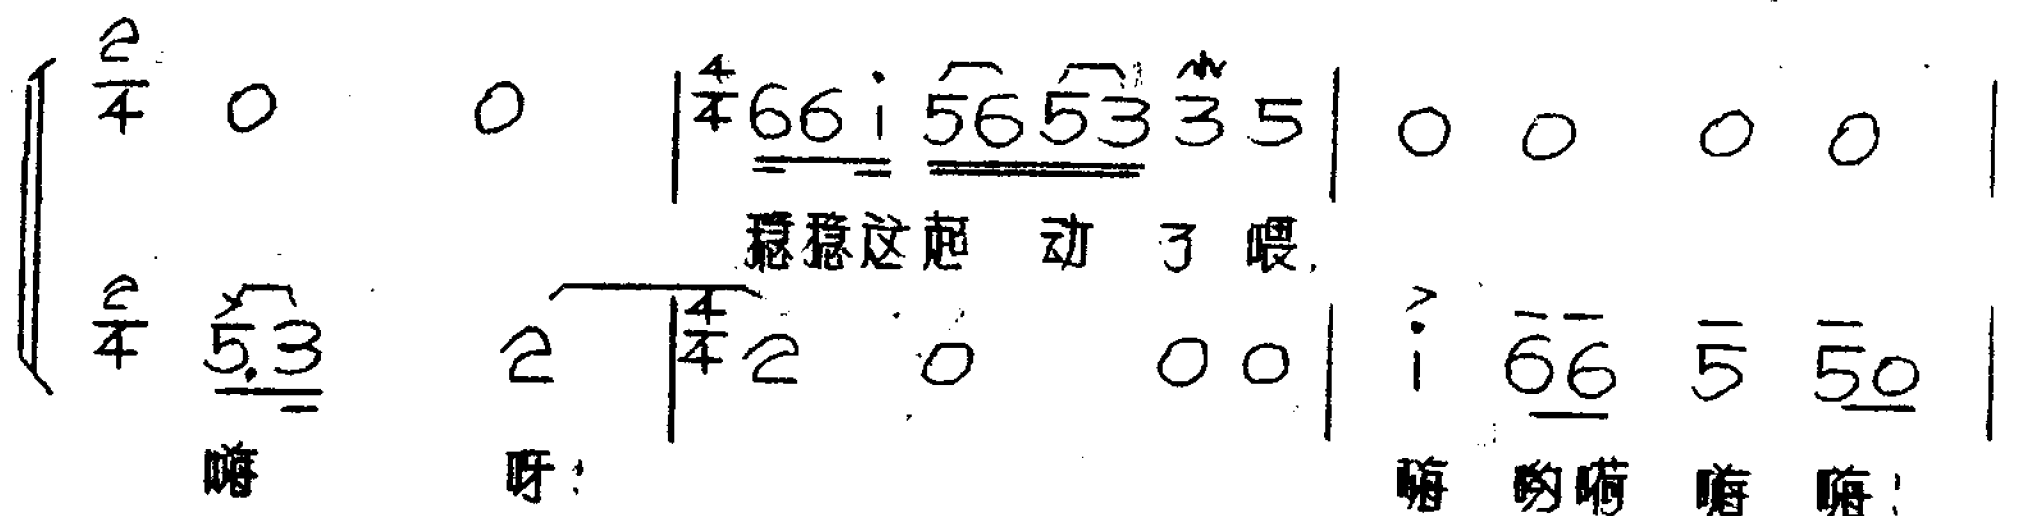 2/4 0 0 | 4/4 6 6 i 5 6 5 3 3 5 | 0 0 0 0 |
稳稳这起 动 了 喂,
2/4 5. 3 2 | 4/4 2 0 0 0 | i 6 6 5 5 0 |
嗨 呀! 嗨 哟嗬 嗨 嗨!